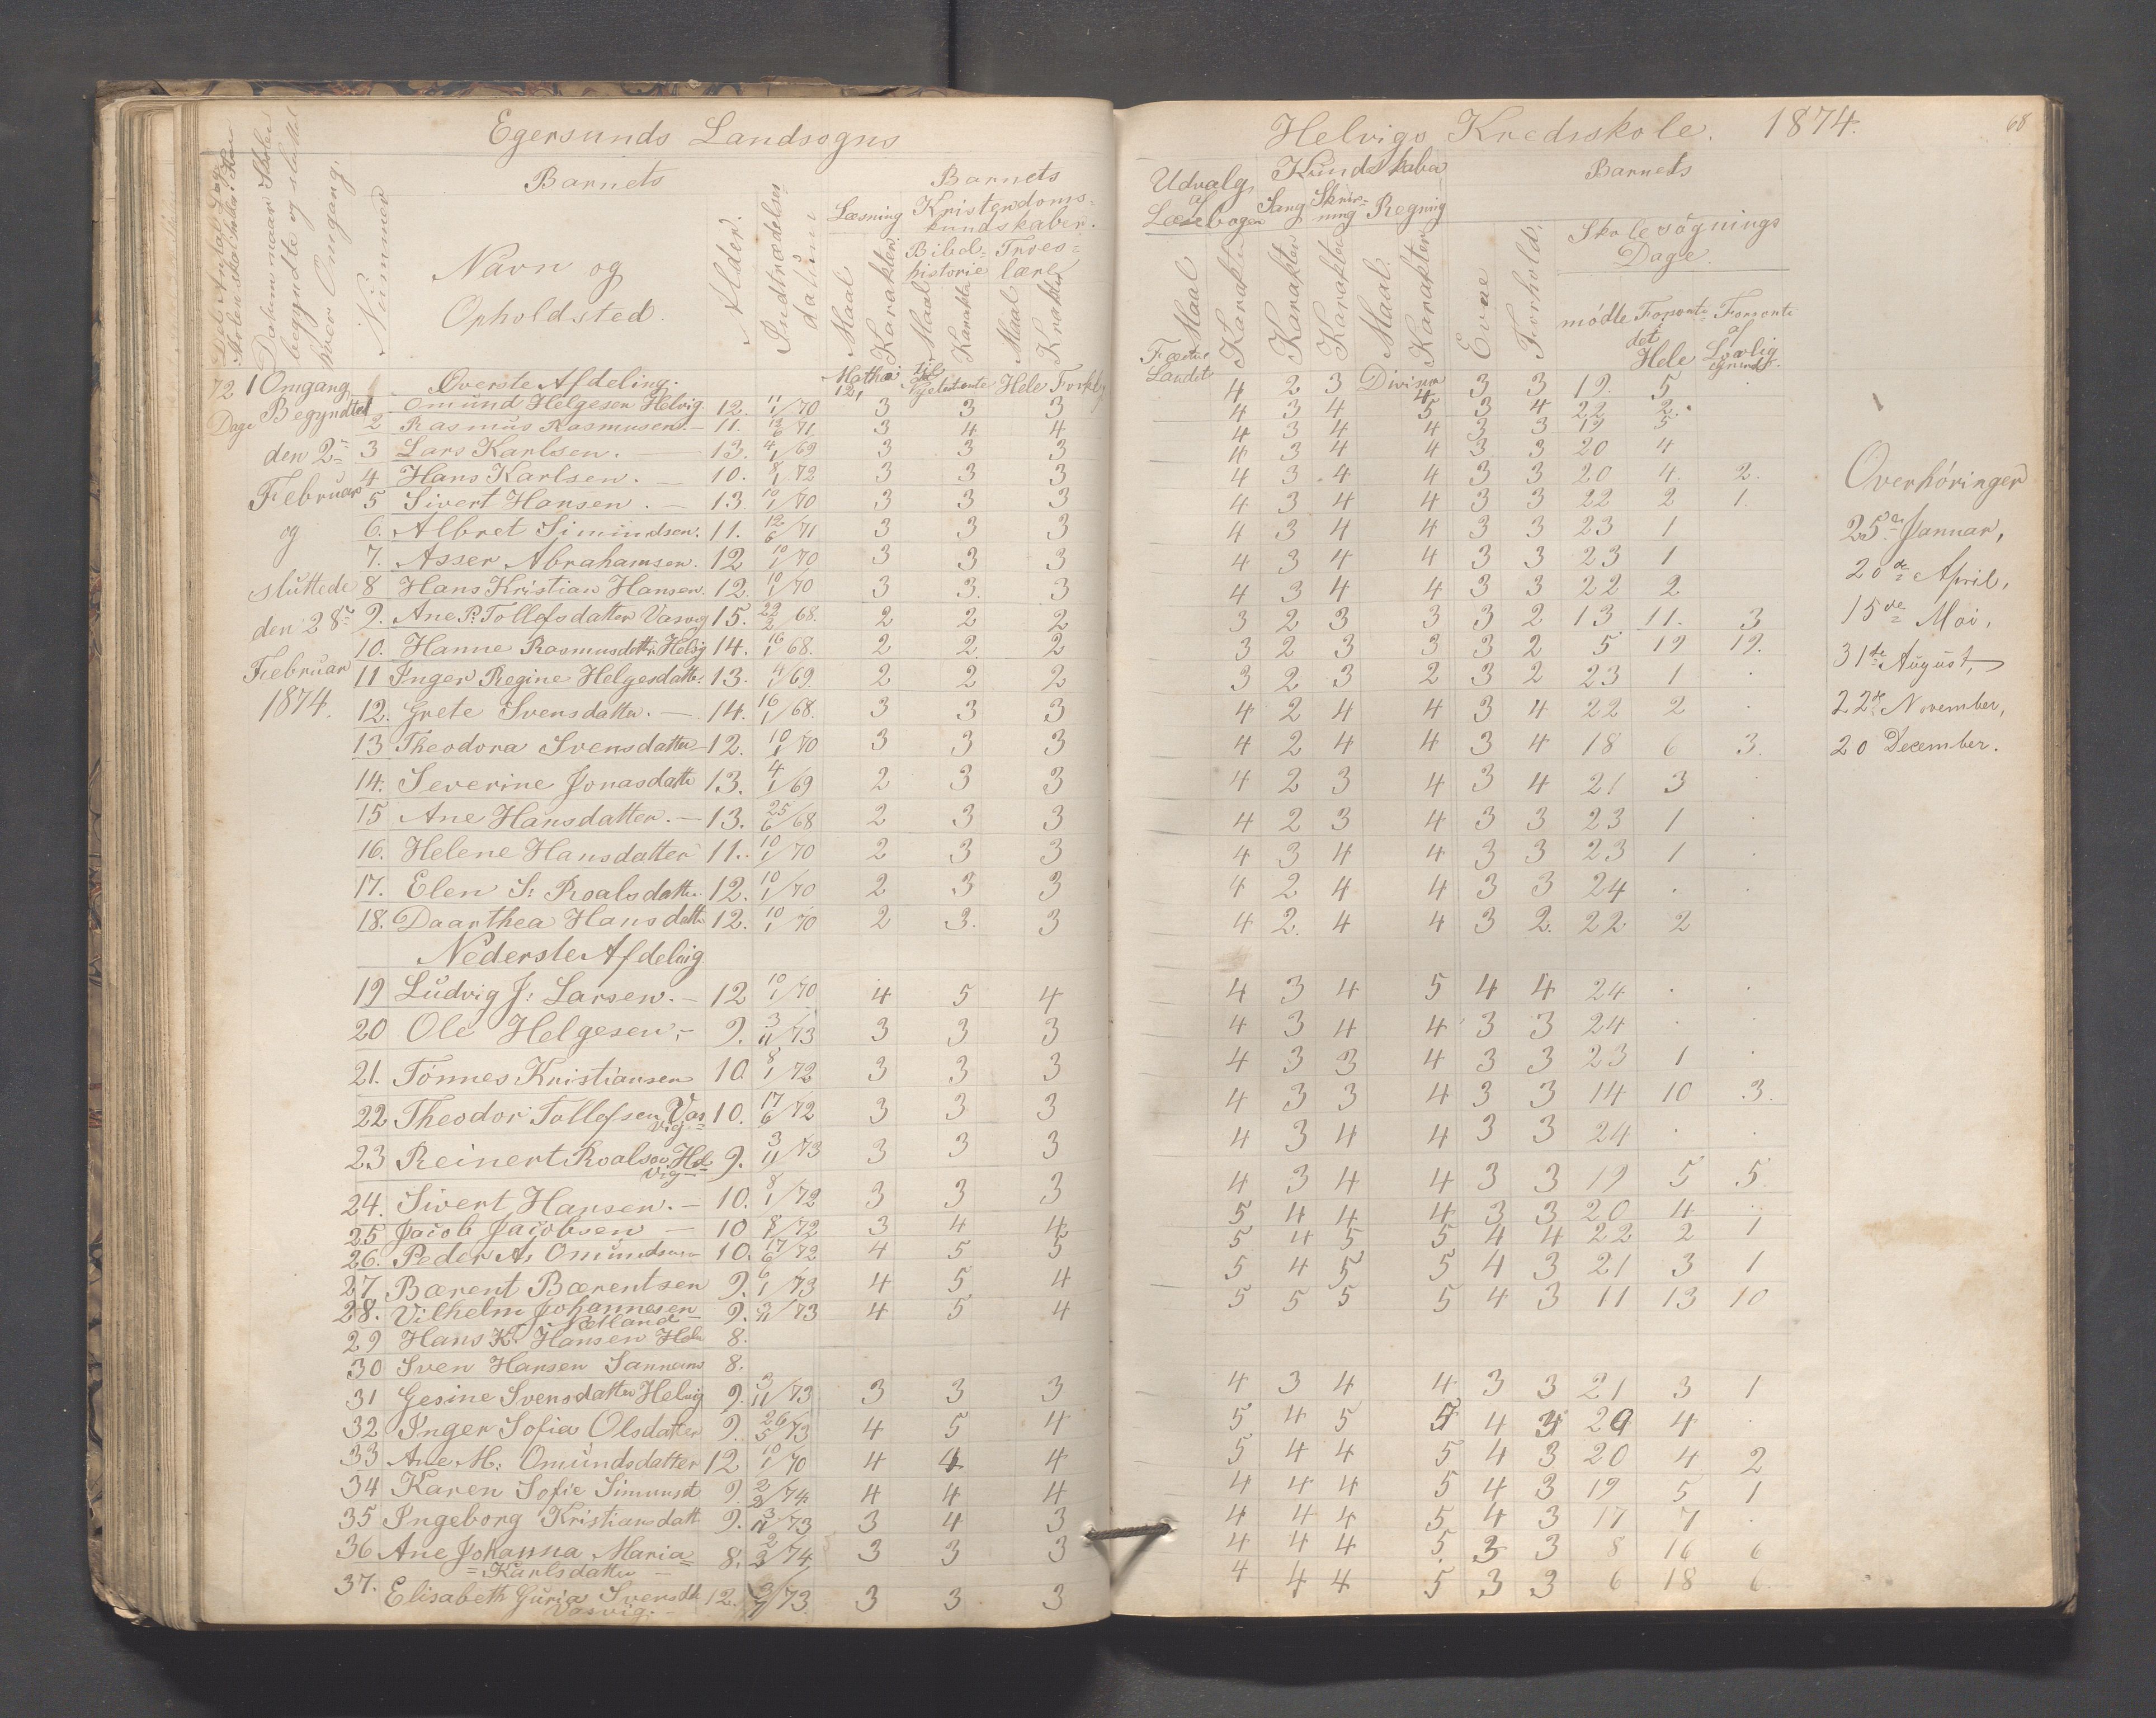 Egersunds Landsogns
Barnets
Barnets
Læsning Kristendoms-
kundskaber.
Bibel-
historie
Troes-
lære
Datum naar Skolen
begyndte og sluttet
hver Omgang.
Nummer
Navn og
Opholdsted.
Alder.
Indtrædelses-
datum
Maal
Karakter
Maal
Karakter
Maal
72 1 Omgang Øverste Afdeling. Mathæi 12, Hele
Dage Begyndte
den 2
Februar
og
sluttede
den 28
Februar
1874.
1 Omund Helgesen Helvig. 12. 11/1 70 3 3 3
2 Rasmus Rasmusen. — 11. 13/6 71 3 4 4
3 Lars Karlsen. — 13. 4/1 69 3 3 3
4 Hans Karlsen. — 10. 8/1 72 3 3 3
5 Sivert Hansen. — 13. 10/1 70 3 3 3
6. Albret Simundsen. 11. 12/6 71 3 3 3
7. Asser Abrahamsen. 12 10/1 70 3 3 3
8 Hans Kristian Hansen. 12. 10/1 70 3 3. 3
9. Ane P. Tollefsdatter Vasvig 15. 22/2 68. 2 2 2
10. Hanne Rasmusdatter Helvig 14. 16/1 68. 2 2 2
11 Inger Regine Helgesdatt. 13. 4/1 69. 2 2 2
12. Grete Svensdatter. — 14. 16/1 68. 3 3 3
13 Theodora Svensdatter — 12. 10/1 70 3 3 3
14. Severine Jonasdatt 13. 4/1 69 2 3 3
15 Ane Hansdatter. — 13. 25/6 68 2 3 3
16. Helene Hansdatter 11. 10/1 70 2 3 3
17. Elen S: Roalsdatt. 12. 10/1 70 2 3 3
18. Daarthea Hansdatt 12. 10/1 70 2 3. 3
Nederste Afdeling.
19 Ludvig J: Larsen. — 12 10/1 70 4 5 4
20 Ole Helgesen. — 9. 3/11 73 3 3 3
21. Tønnes Kristiansen 10. 8/1 72 3 3 3
22 Theodor Tollefsen Vas 10. 17/6 72 3 3 3
vig =
23 Reinert Roalsen Hel 9. 3/11 73 3 3 3
vig —
24. Sivert Hansen. — 10. 8/1 72 3 3 3
25 Jacob Jacobsen — 10 8/1 72 3 4 4
26. Peder A. Omundsen 10. 17/6 72 4 5 5
27. Bærent Bærentsen 9. 6/1 73 4 5 4
28. Vilhelm Johannesen — 9. 3/11 73 4 5 4
29 Hans K. Hansen 8.
30 Sven Hansen 8.
31 Gesine Svensdatter Helvig 9. 3/11 73 3 3 3
32 Inger Sofia Olsdatter 9. 26/5 73 4 5 4
33 Ane M: Omundsdatter 12 10/1 70 4 4 4
34 Karen Sofie Simunsdt 9. 2/2 74 4 4 4
35 Ingeborg Kristiansdatt 9. 3/11 73 3 4 3
36 Ane Johanna Maria = 8. 2/2 74 3 3 3
= Karlsdatter —
37. Elisabeth Guria Svensdt 12. 73. 3 3 3
Vasvig. —
Helvigs Kredsskole. 1874. 68
Udvalg
af
Læsebogen
Kundskaber
Sang Skriv-
ning Regning
Barnets
Skolesøgnings
Dage.
Maal
Karakter
Karakter
Karakter
Maal.
Karakter
Evne
Forhold.
mødte Forsømte
det
Hele
Forsømte
af
Lovlig
Grund.
Fædre
Landet
4 2 3 Division 4 3 3 19. 5
4 3 4 5 3 4 22 2.
4 3 4 4 3 3 19 5
4 3 4 4 3 3 20 4
4 3 4 4 3 3 20 4. 2.
4 3 4 4 3 3 22 2 1.
4 3 4 4 3 3 23 1
4 3 4 4 3 3 23 1
4 3 4 4 3 3 22 2
3 2 3 3 3 2 13 11. 3
3 2 3 3 3 2 5 19 19.
3 2 3 2 3 2 23 1 .
4 2 4 4 3 4 22 2 .
4 2 4 4 3 4 18 6 3.
4 2 3 4 3 4 21 3 .
4 2 3 4 3 3 23 1 .
4 3 4 4 3 3 23 1 .
4 2 4 4 3 3 24 . .
4 2. 4 4 3 2. 22 2
4 3 4 5 4 4 24 . .
4 3 4 4 3 3 24 . .
4 3 3 4 3 3 23 1 .
4 3 3 4 3 3 14 10 3.
4 3 4 4 3 3 24 . .
4 3 4 4 3 3 19 5 5.
5 4 4 4 3 3 20 4 .
5 4 5 5 4 4 22 2 1
5 4 5 5 4 3 21 3 1
5 5 5 5 4 3 11 13 10
4 3 4 4 3 3 21 3 1
5 4 5 5 4 4 .
5 4 4 5 4 3 20 4 2
4 4 4 5 4 3 19 5 1
4 4 4 5 4 3 17 7 .
4 4 4 5 3 3 8 16 6
4 4 4 5 3 3 6 18 6
Overhøringer
25de Januar,
20de April,
15de Mai,
31te August,
22de November,
20 December.